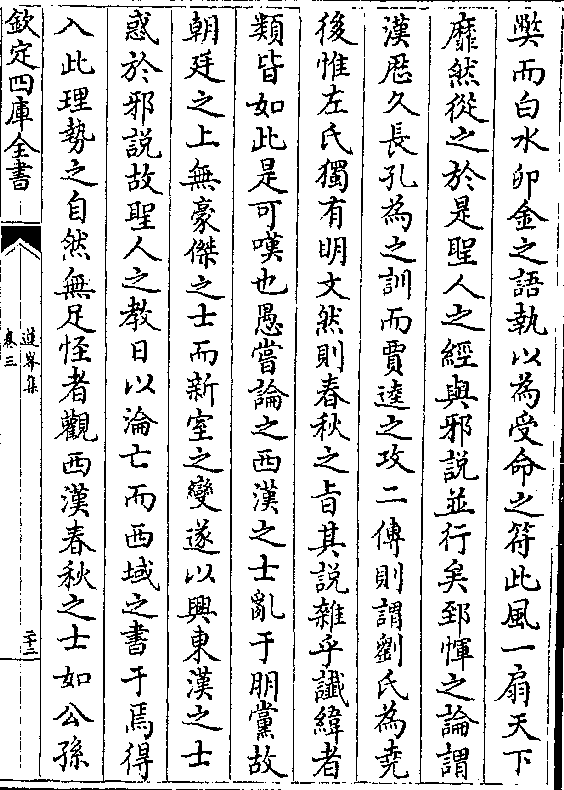 獘而白水卯金之語執以為受命之符此風一扇天下
靡然從之於是聖人之經與邪說並行矣郅惲之論謂
漢歴久長孔為之訓而賈逵之攻二傳則謂劉氏為堯
後惟左氏獨有明文然則春秋之㫖其說雜乎讖緯者
類皆如此是可嘆也愚嘗論之西漢之士亂于朋黨故
朝廷之上無豪傑之士而新室之變遂以興東漢之士
惑於邪說故聖人之教日以淪亡而西域之書于焉得
入此理勢之自然無足怪者觀西漢春秋之士如公孫
欽定四庫全書
蓮峯集
卷三
二十三